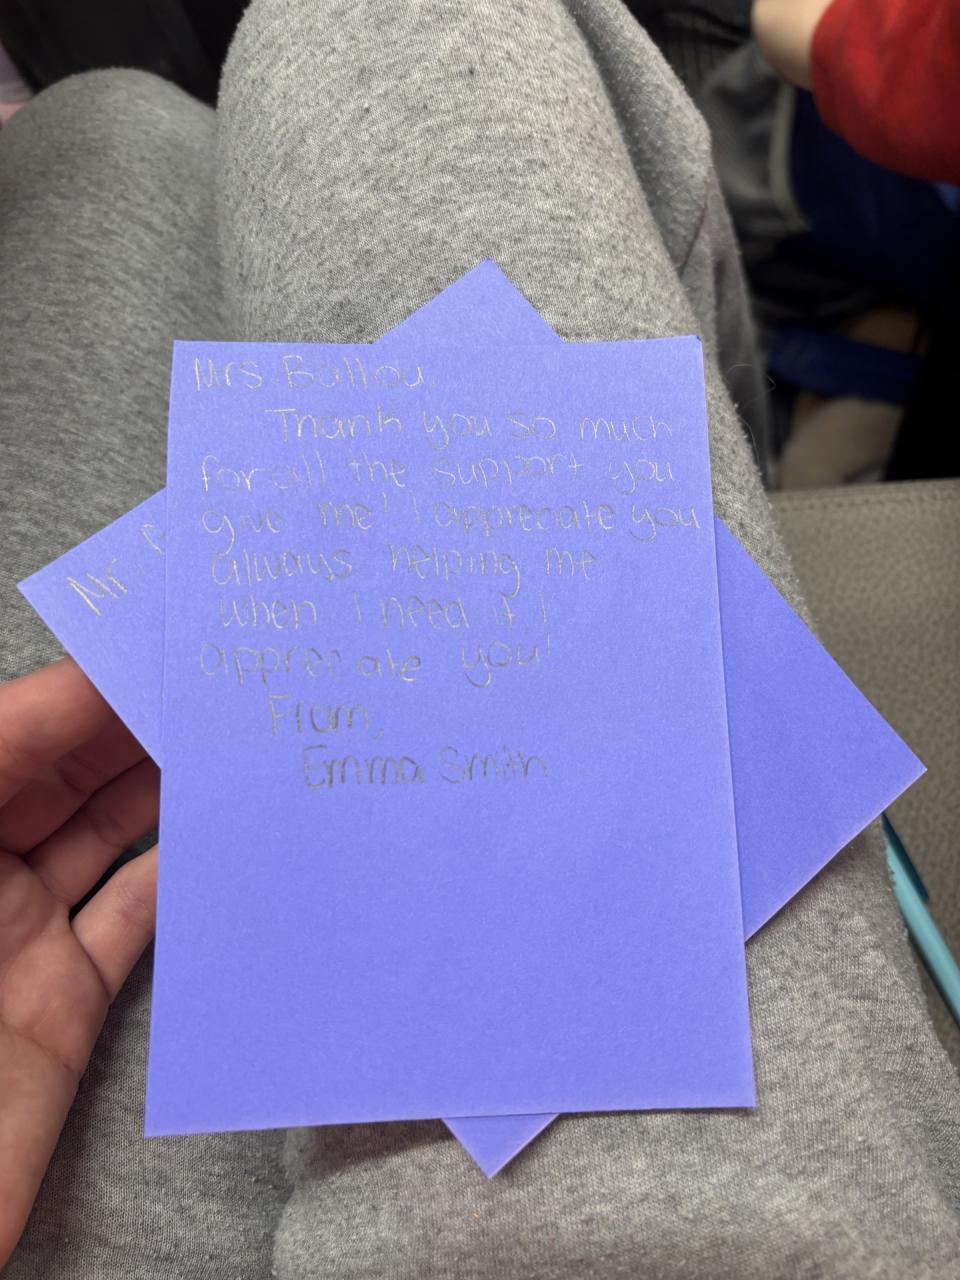 Mrs Ballou,
Thank you so much
for all the support you
give me! I appreciate you
always helping me
when I need it I
appreciate you!
From,
Emma Smith
Mr.